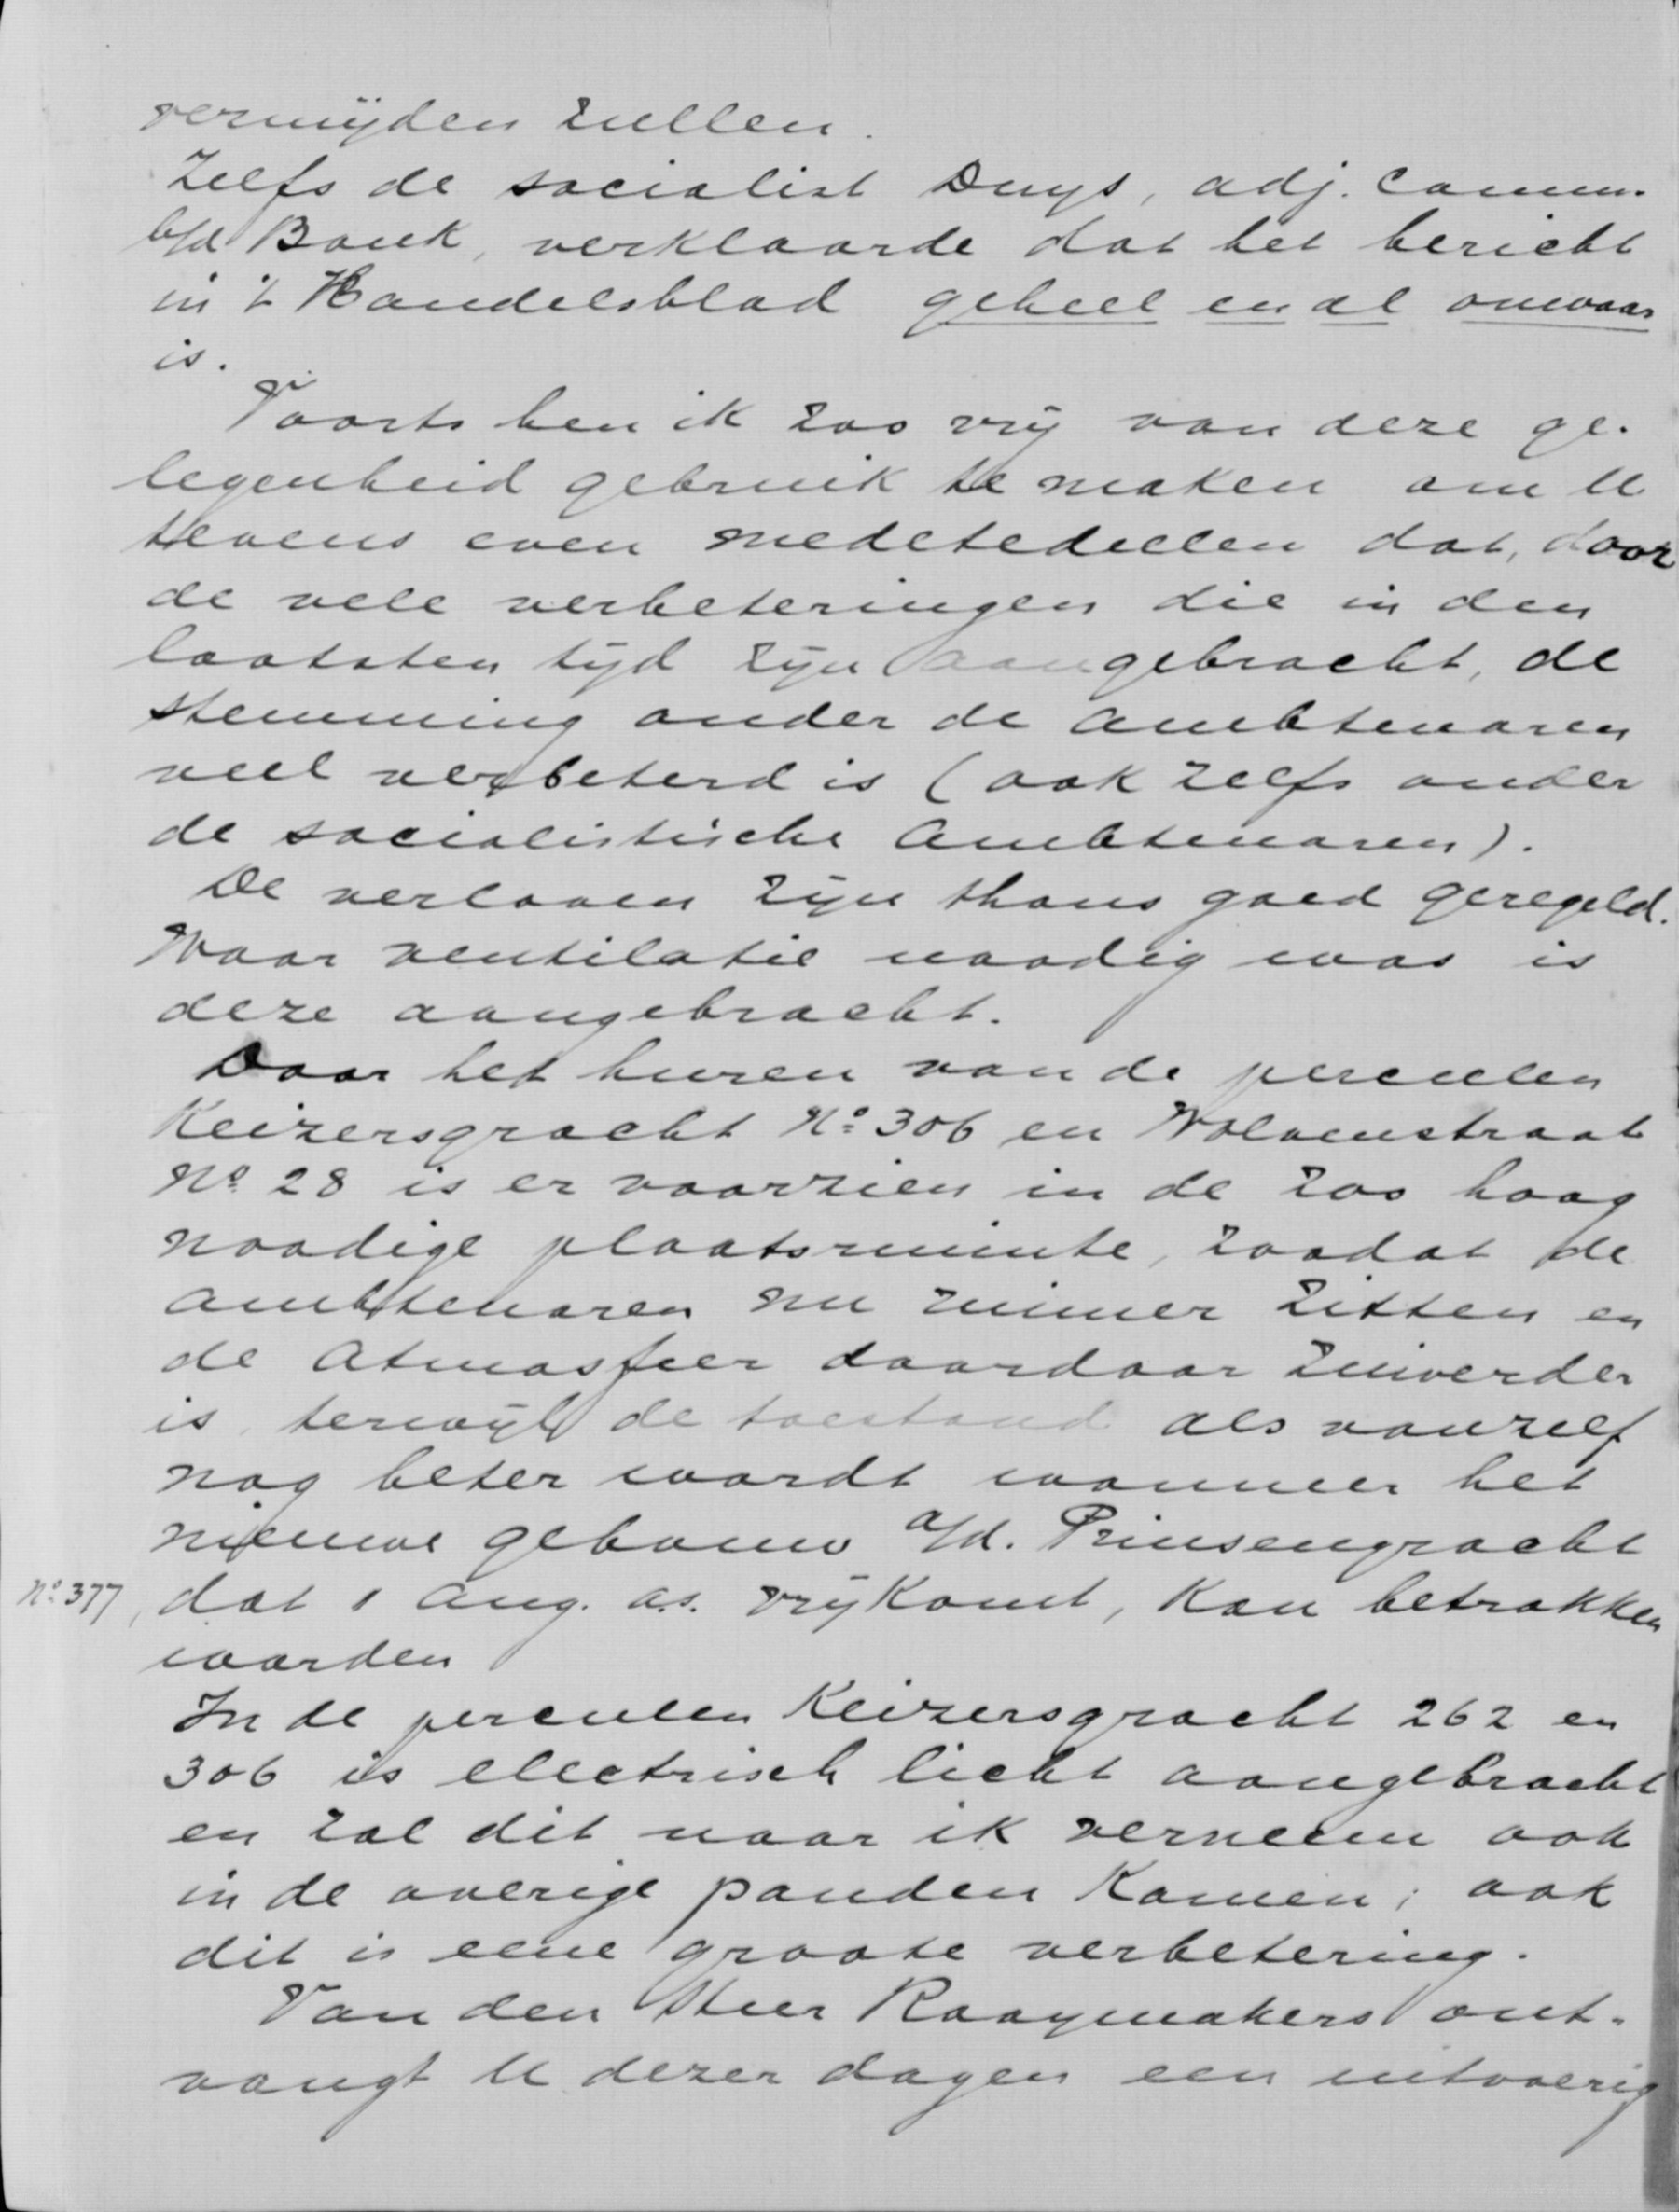 vermijden zullen.
Zelfs de socialist Duys, adj. Comm.
b/d Bank, verklaarde dat het bericht
in 't Handelsblad geheel en al onwaar
is.
Voorts ben ik zoo vrij van deze ge-
legenheid gebruik te maken om U
tevens even medetedeelen dat, door
de vele verbeteringen die in den
laatsten tijd zijn aangebracht, de
stemming onder de Ambtenaren
veel verbeterd is (ook zelfs onder
de socialistische Ambtenaren).
De verloven zijn thans goed geregeld.
Waar ventilatie noodig was is
deze aangebracht.
Door het huren van de perceelen
Keizersgracht No. 306 en Wolvenstraat
No. 28 is er voorzien in de zoo hoog
noodige plaatsruimte, zoodat de
Ambtenaren nu ruimer zitten en
de Atmosfeer daardoor zuiverder
is, terwijl de toestand als vanzelf
nog beter wordt wanneer het
nieuwe gebouw a/d. Prinsengracht
No. 377, dat 1 Aug. a.s. vrijkomt, kan betrokken
worden
In de perceelen Keizersgracht 262 en
306 is electrisch licht aangebracht
en zal dit naar ik verneem ook
in de overige panden komen; ook
dit is eene groote verbetering.
Van den Heer Raaymakers ont-
vangt U dezer dagen een uitvoerig